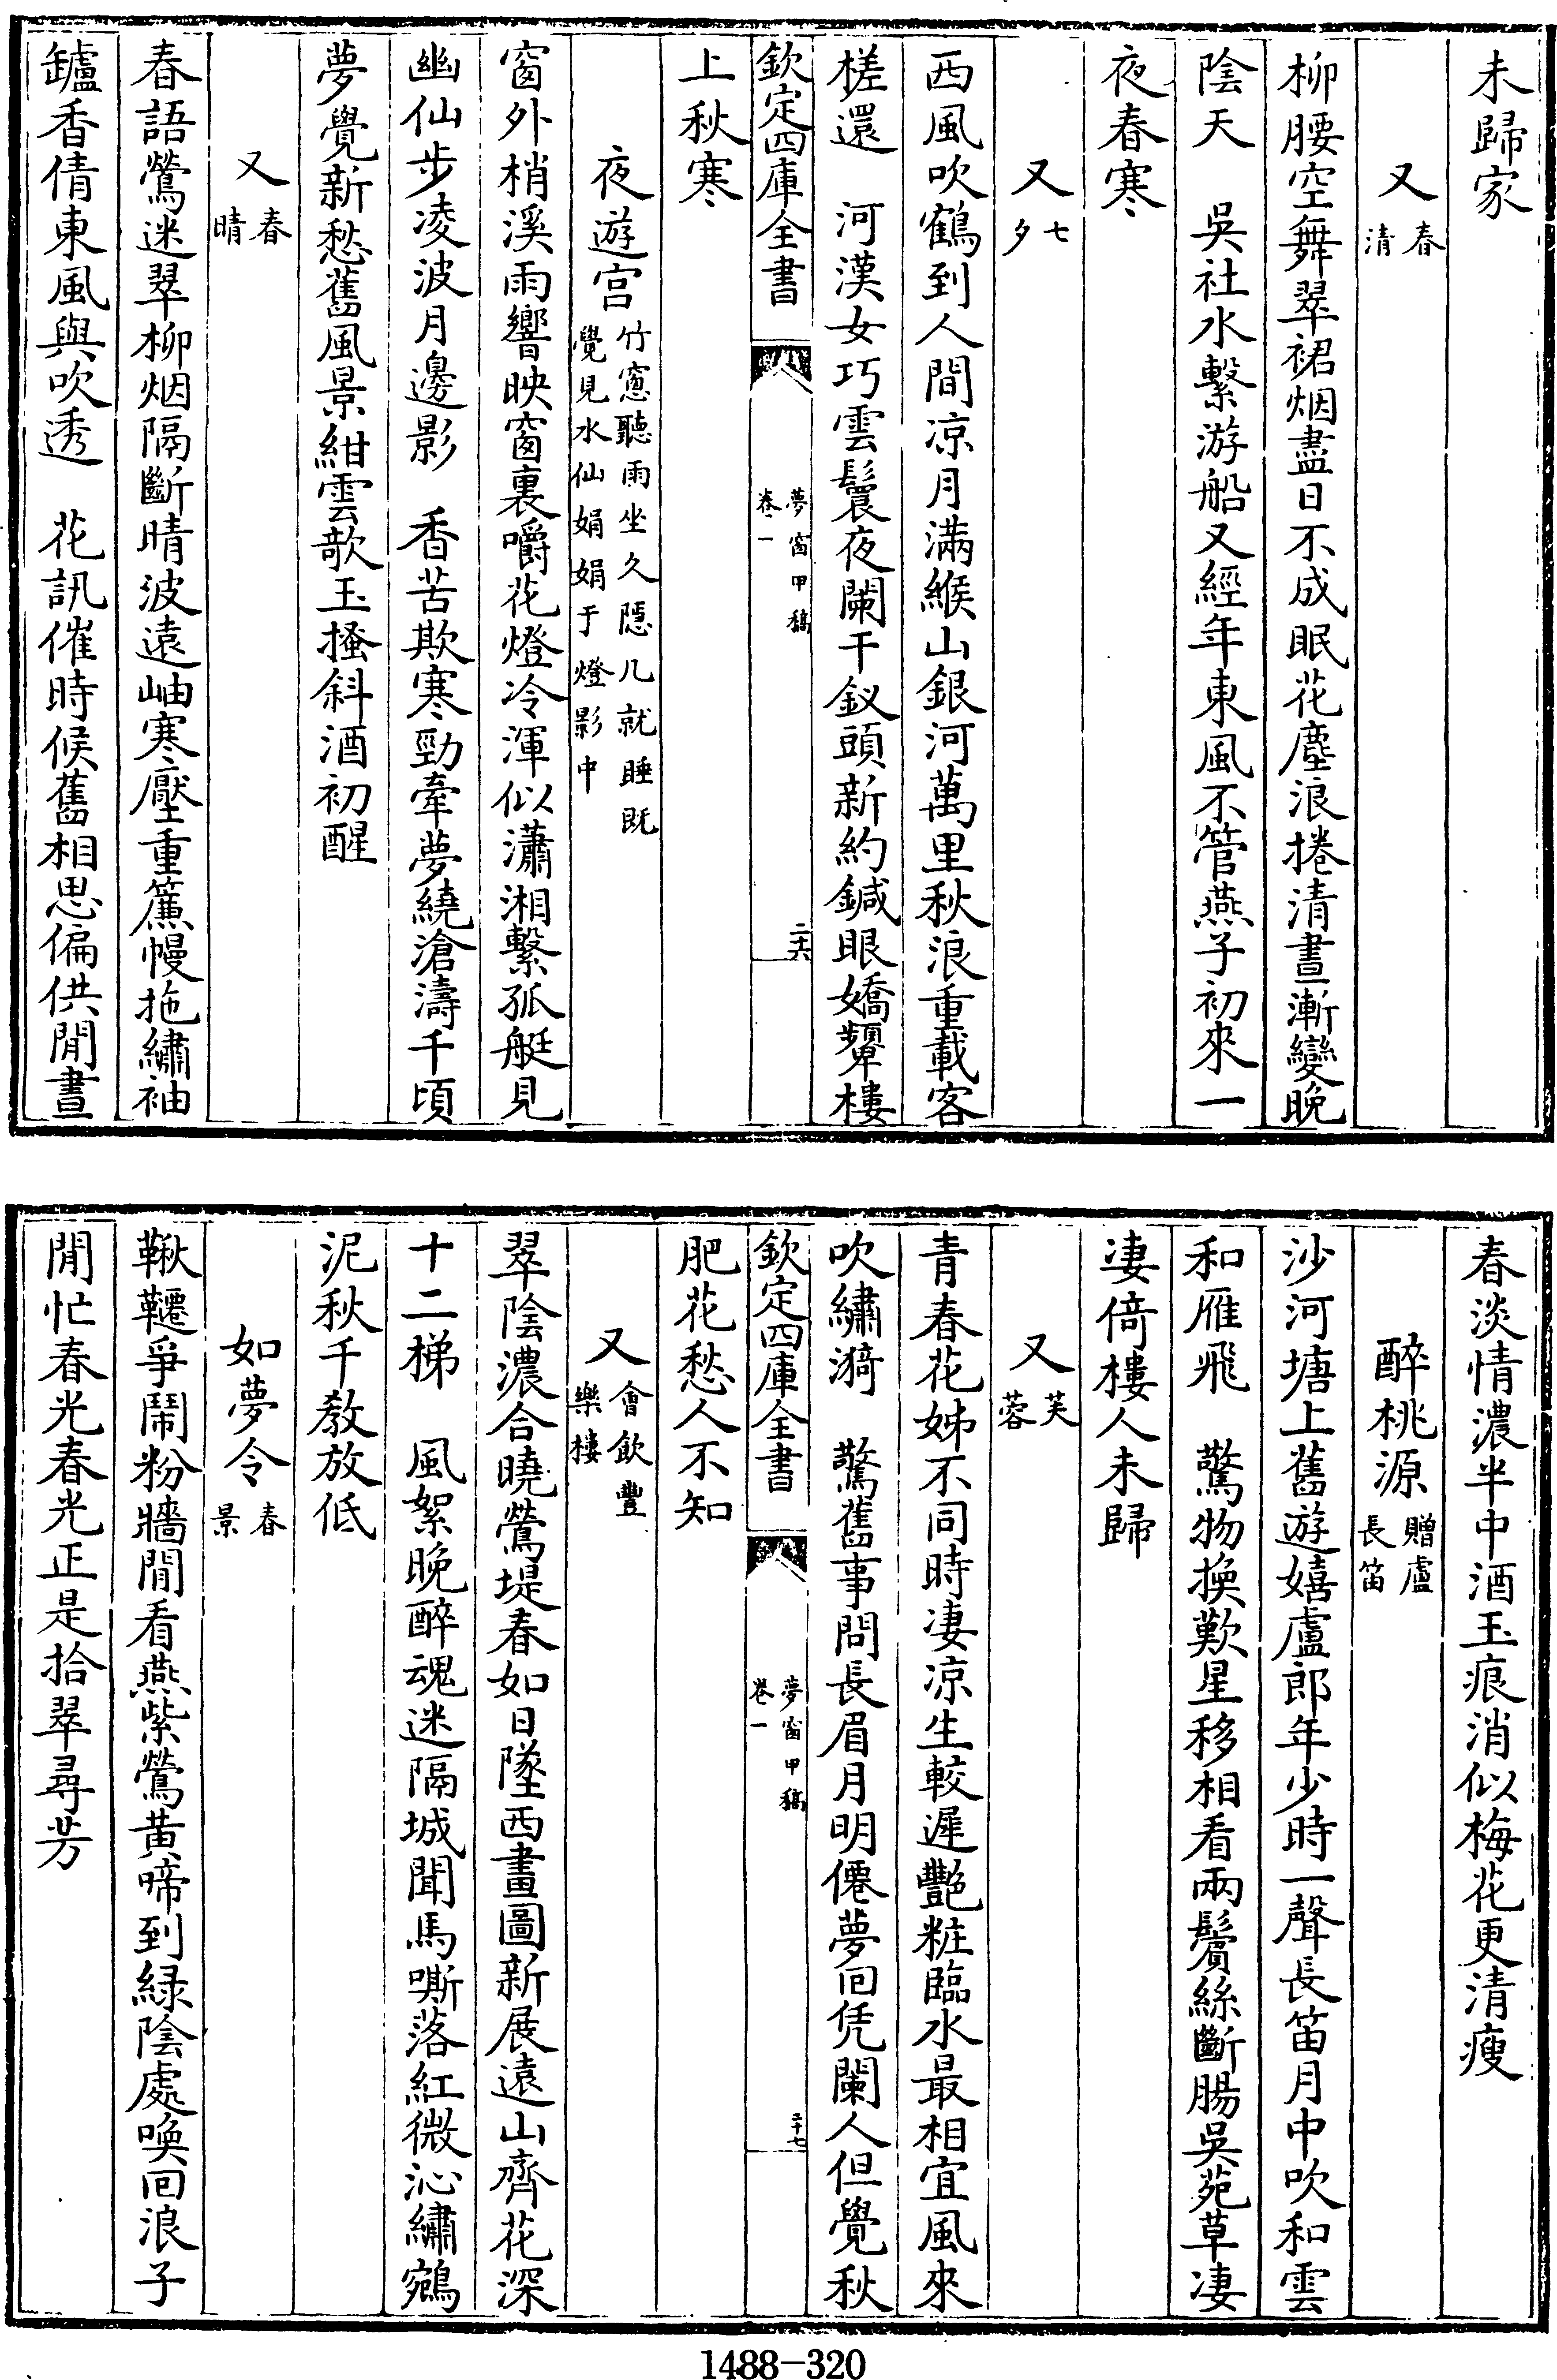 未歸家
又春清
柳腰空舞翠裙烟盡日不成眠花塵浪捲清晝漸變晚
陰天　吳社水繫游船又經年東風不管燕子初來一
夜春寒
又七夕
西風吹鶴到人間凉月滿緱山銀河萬里秋浪重載客
槎還　河漢女巧雲鬟夜闌干釵頭新約鍼眼嬌顰樓
欽定四庫全書
夢窗甲稿
卷一
二十六
上秋寒
夜遊宫竹窻聽雨坐久隱几就睡既
覺見水仙娟娟于燈影中
窗外梢溪雨響映窗裏嚼花燈冷渾似瀟湘繫孤艇見
幽仙步凌波月邊影　香苦欺寒勁牽夢繞滄濤千頃
夢覺新愁舊風景紺雲欹玉搔斜酒初醒
又春晴
春語鶯迷翠柳烟隔斷晴波遠岫寒壓重簾幔拖繡袖
罏香倩東風與吹透　花訊催時候舊相思偏供閒晝
春淡情濃半中酒玉痕消似梅花更清瘦
醉桃源贈盧長笛
沙河塘上舊遊嬉盧郎年少時一聲長笛月中吹和雲
和雁飛　驚物換歎星移相看兩鬢絲斷腸吳苑草淒
淒倚樓人未歸
又芙蓉
青春花姊不同時淒凉生較遲艷粧臨水最相宜風來
吹繡漪　驚舊事問長眉月明僊夢回凭闌人但覺秋
欽定四庫全書
夢窗甲稿
卷一
二十七
肥花愁人不知
又會飲豐樂樓
翠陰濃合曉鶯堤春如日墜西畫圖新展遠山齊花深
十二梯　風絮晚醉魂迷隔城聞馬嘶落紅微沁繡鵷
泥秋千教放低
如夢令春景
鞦韆爭鬧粉牆閒看燕紫鶯黃啼到緑陰處喚回浪子
閒忙春光春光正是拾翠尋芳
1488-320